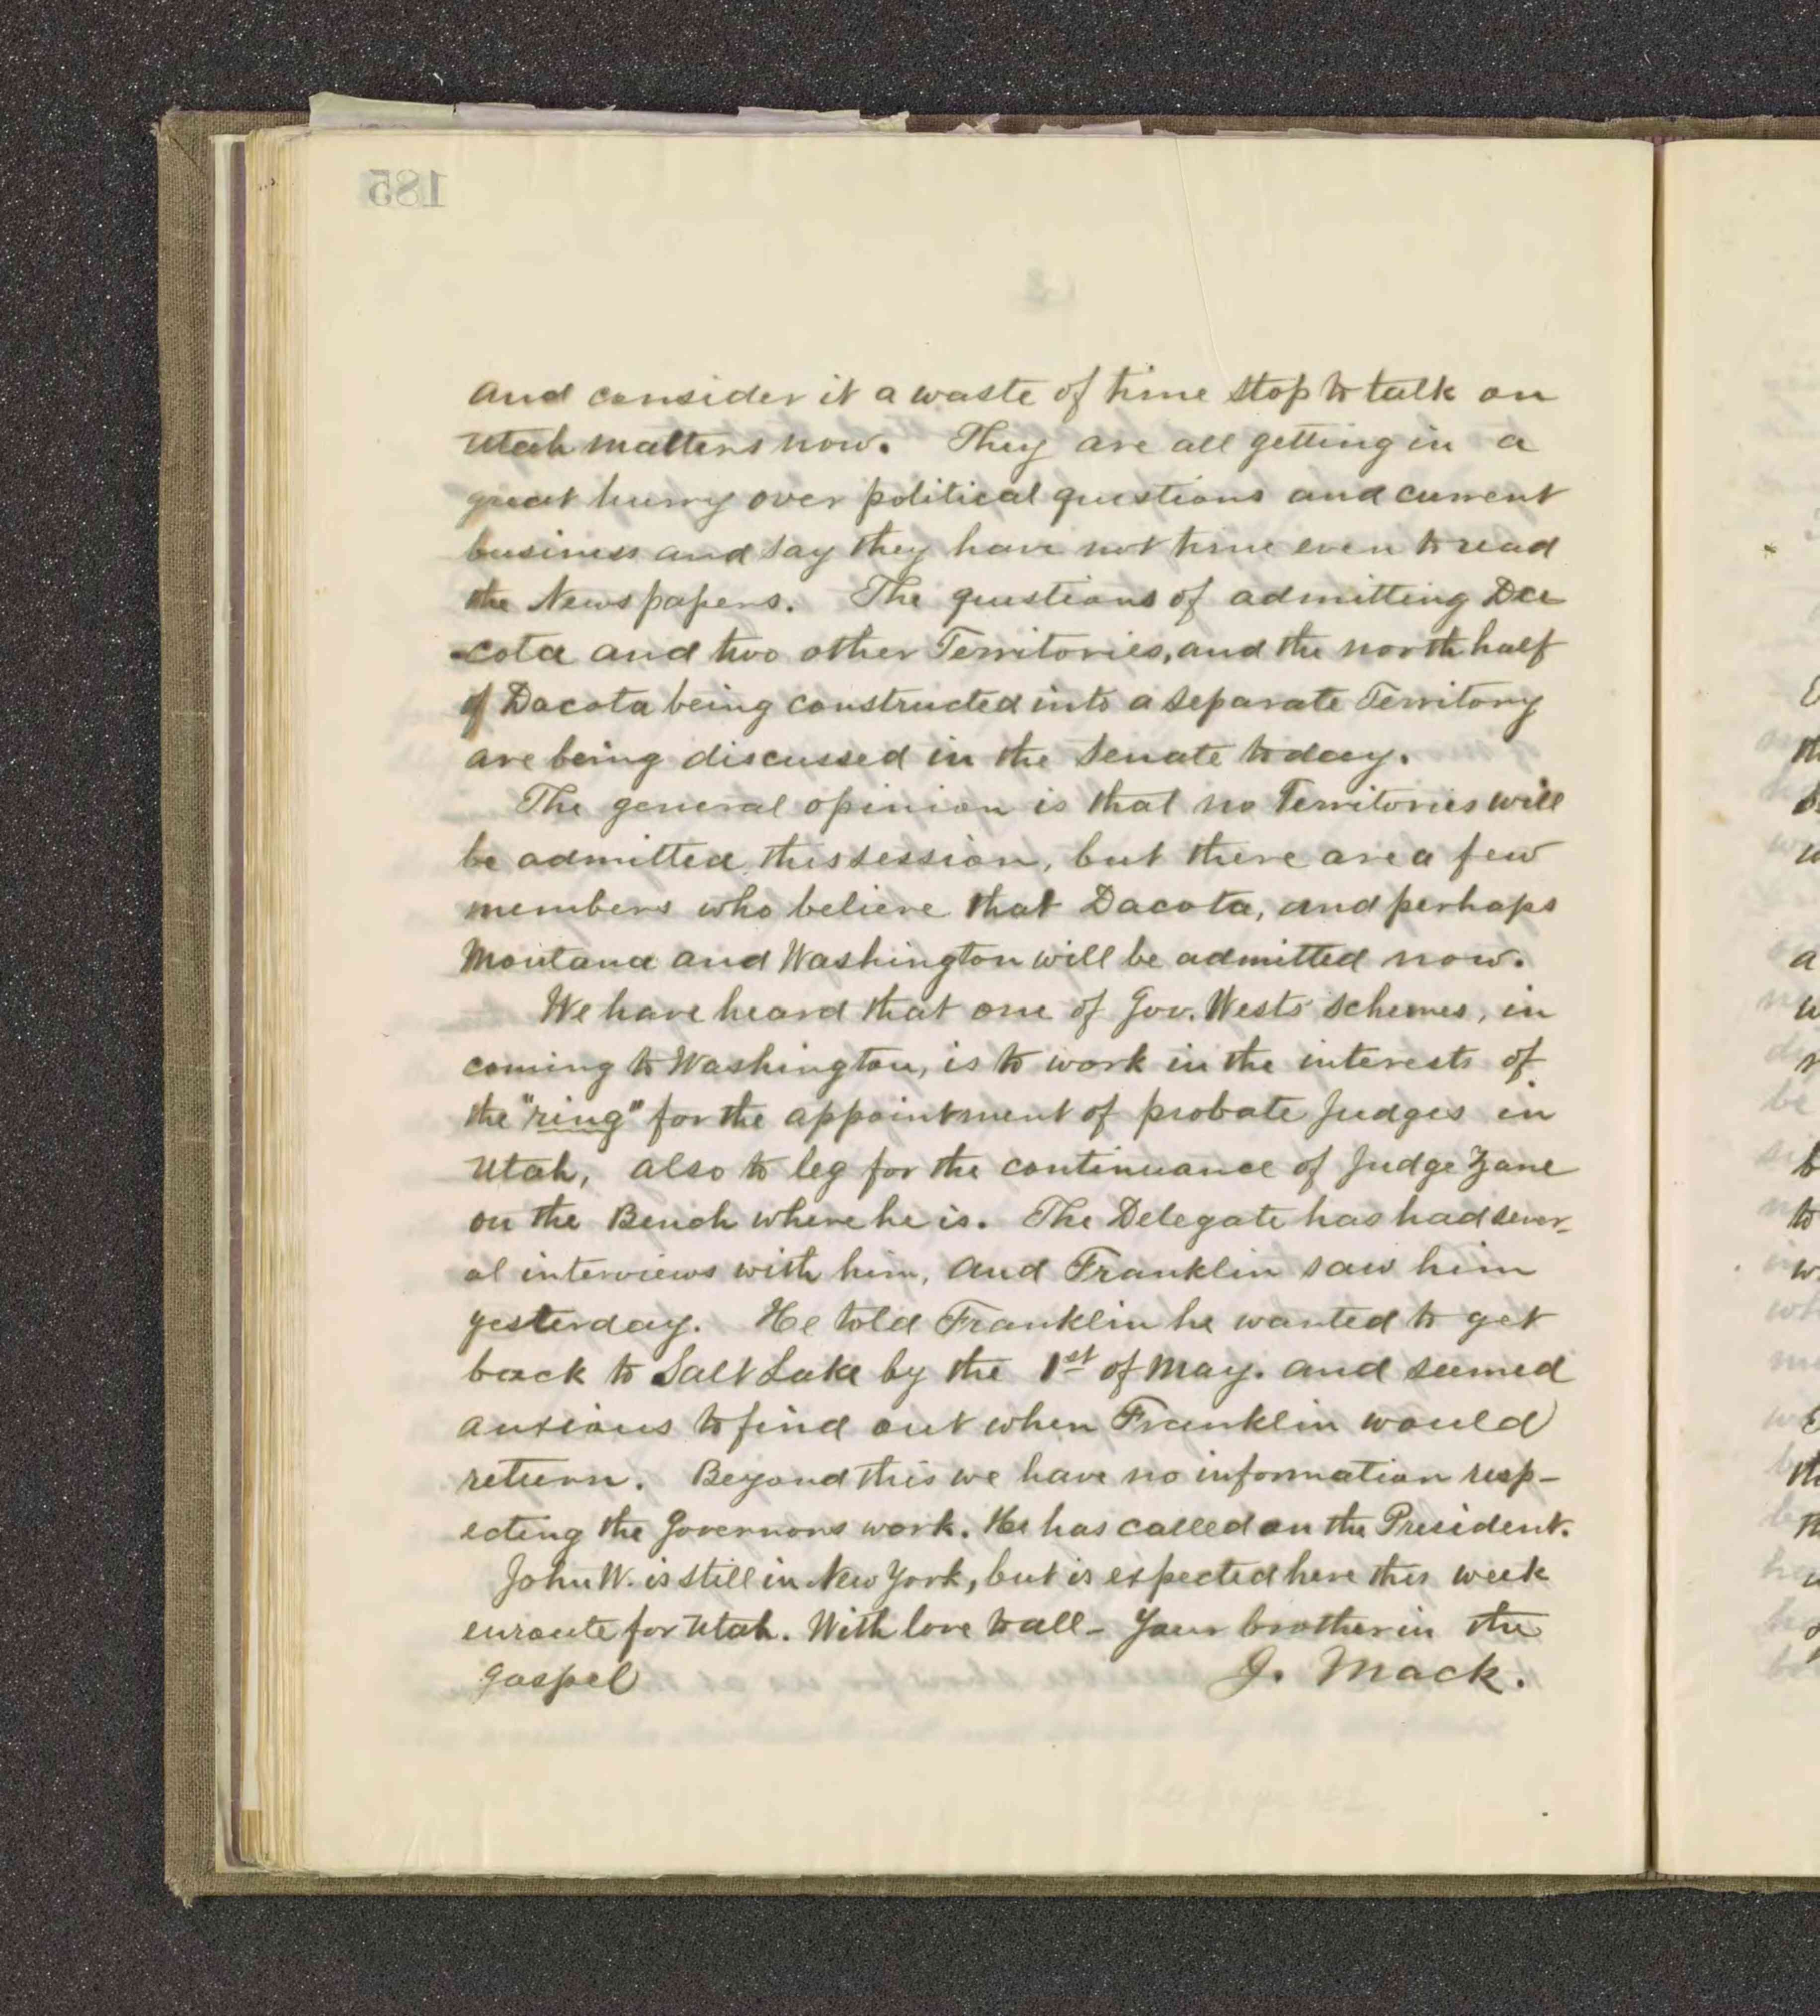 185
and consider it a waste of time stop to talk on
Utah matters now. They are all getting in a
great hurry over political questions and current
business and say they have not time even to read
the Newspapers. The questions of admitting Da
-cota and two other Territories, and the north half
of Dacota being constructed into a separate Territory
are being discussed in the Senate today.
The general opinion is that no Territories will
be admitted this session, but there are a few
members who believe that Dacota, and perhaps
Montana and Washington will be admitted now.
We have heard that one of Gov. Wests schemes, in
coming to Washington, is to work in the interests of
the "ring" for the appointment of probate Judges in
Utah, also to leg for the continuance of Judge Zane
on the Bench where he is. The Delegate has had sever-
al interviews with him, and Franklin saw him
yesterday. He told Franklin he wanted to get
back to Salt Lake by the 1st of May. and seemed
anxious to find out when Franklin would
return. Beyond this we have no information resp-
ecting the Governors work. He has called on the President.
John W. is still in New York, but is expected here this week
enroute for Utah. With love to all - Your brother in the
gospel J. Mack.